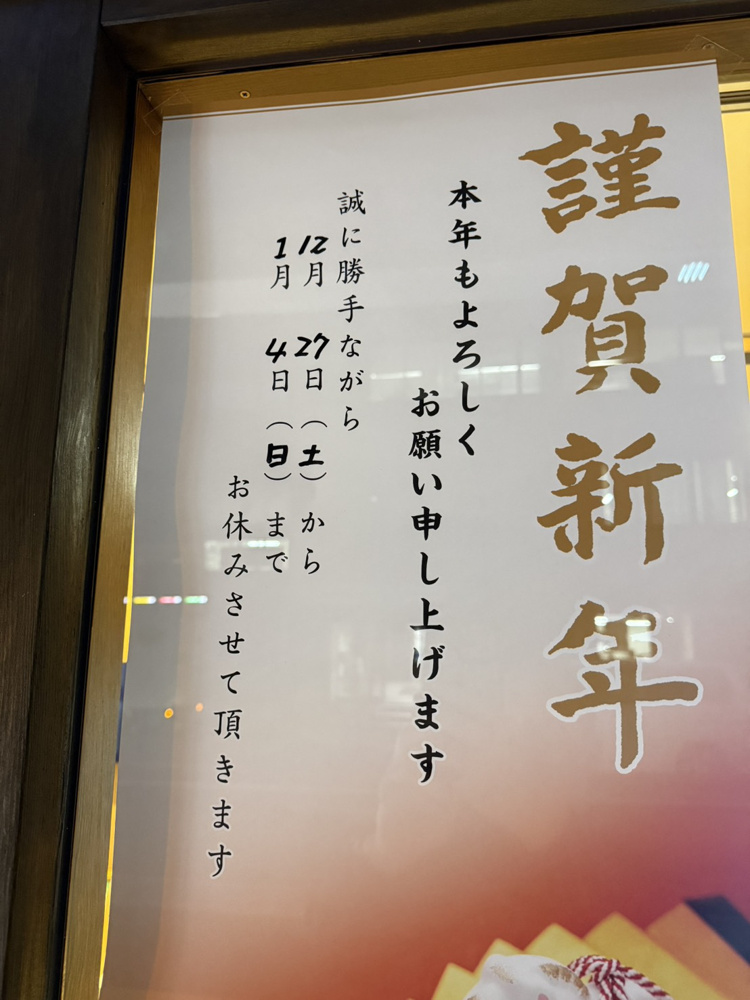 謹賀新年
本年もよろしく
お願い申し上げます
誠に勝手ながら
12月27日(土)から
1月4日(日)まで
お休みさせて頂きます